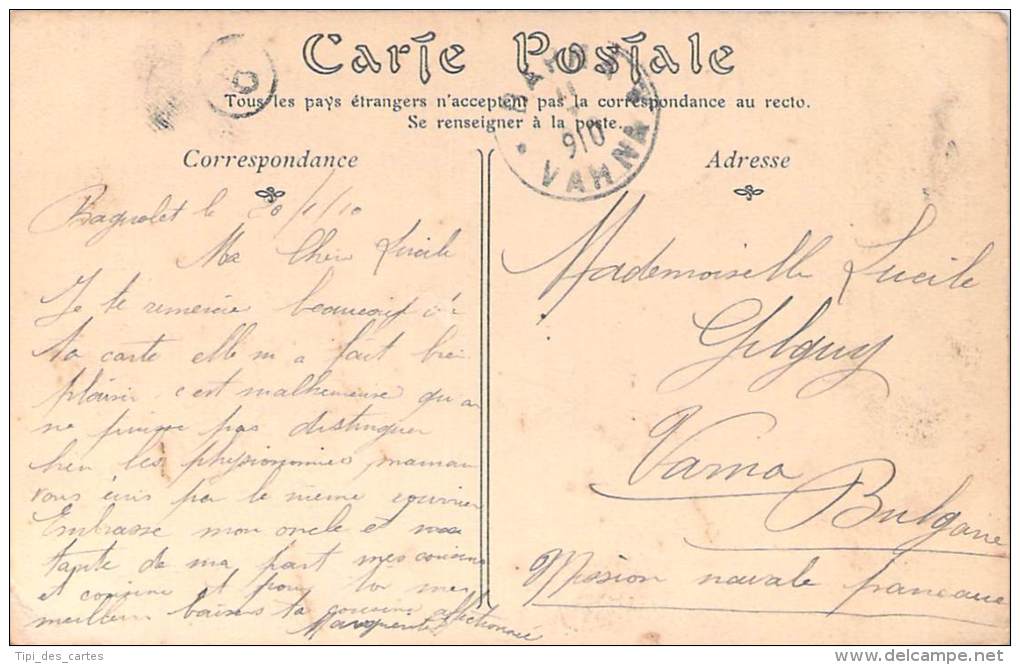 Carte Postale
Tous les pays étrangers n'acceptent pas la correspondance au recto.
Se renseigner à la poste.
ВАРНА
910
VARNA
Correspondance
Adresse
Bagnolet le 20/1/10
Ma Chère Lucile
Je te remercie beaucoup de
ta carte elle m a fait bien
plaisir c est malheureuse qu on
ne puisse pas distinguer
bien les physionomies maman
vous écris par le même courrier
Embrasse mon oncle et ma
tante de ma part mes cousins
et cousine et pour toi mes
meilleurs baisers ta cousine affectionnée
Marguerite
Mademoiselle Lucile
Gilguy
Varna
Bulgarie
Mission navale française
Tipi_des_cartes
www.delcampe.net